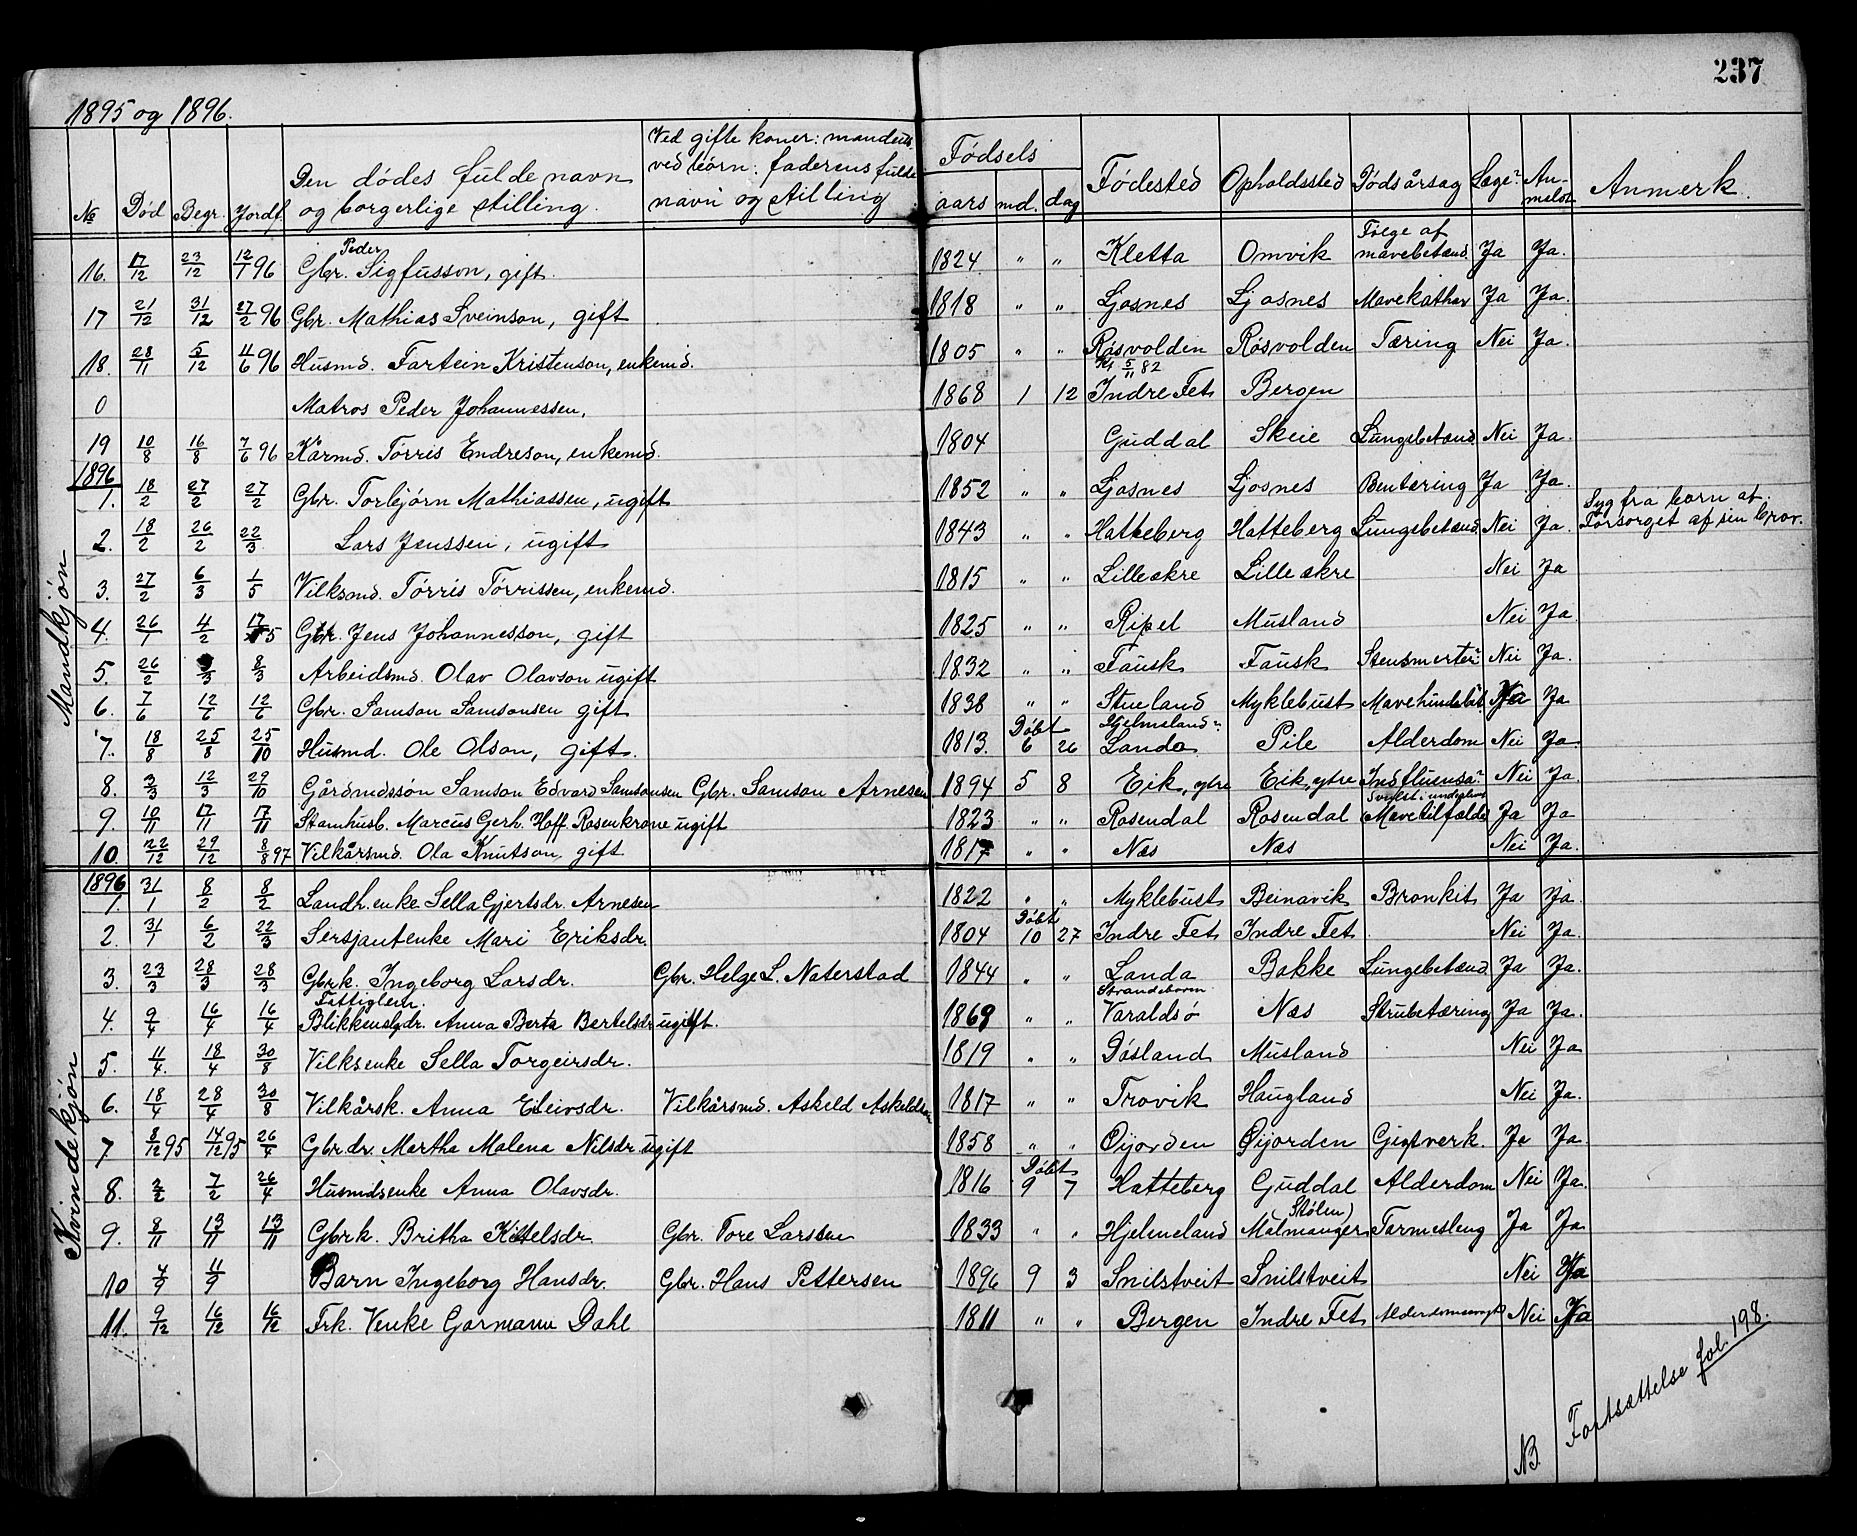 237
1895 og 1896.
№ Död Begr. Jordf. Den dödes fulde navn og borgerlige stilling. Ved gifte koner: mandens, ved börn: faderens fulde navn og stilling Fødsels aars md. dag Fødested Opholdssted Dødsårsag Læge? Anmeldt Anmerk.
Mandkjøn
16. 17/12 23/12 12/1 96 Gbr. Peder Sigfusson, gift. 1824 " " Kletta Omvik Følge af mavebetænd. Ja Ja.
17 21/12 31/12 27/2 96 Gbr. Mathias Sveinson, gift 1818 " " Ljosnes Ljosnes Mavekathar Ja Ja.
18. 28/11 5/12 4/6 96 Husmd. Fartein Kristenson, enkemd. 1805 " " Røsvolden Røsvolden Tæring Nei Ja.
0 Matros Peder Johannessen, 1868 1 12 Indre Fet Bergen
19 10/8 16/8 7/6 96 Kårmd. Tørris Endreson, enkemd. 1804 Guddal Skeie Lungebetænd Nei Ja.
1896
1. 18/2 27/2 27/2 Gbr. Torbjørn Mathiassen, ugift 1852 " " Ljosnes Ljosnes Bentæring Ja Ja.
2. 18/2 26/2 22/3 Lars Jenssen, ugift 1843 " " Hatteberg Hatteberg Lungebetænd. Nei Ja. Syg fra barn af. Forsørget af sin bror.
3. 27/2 6/3 1/5 Vilksmd. Tørris Tørrissen, enkemd. 1815 " " Lilleakre Lilleakre Nei Ja
4. 26/1 4/2 17/5 Gbr. Jens Johannesson, gift 1825 " " Ripel Musland Nei Ja.
5. 26/2 /3 8/3 Arbeidsmd. Olav Olavson ugift 1832 " " Fausk Fausk Stensmerter Nei Ja.
6. 7/6 12/6 12/6 Gbr. Samson Samsonsen gift 1838 " " Stueland Myklebust Ja Ja
7. 18/8 25/8 25/10 Husmd. Ole Olson, gift. 1813. Døbt 6 26 Hjelmeland? Landa Pile Alderdom Nei Ja.
8. 3/3 12/3 29/10 Gårdmdssön Samson Edvard Samsonsen Gbr. Samson Arnesen 1894 5 8 Eik, ytre Eik, ytre Indfluensa? Nei Ja.
9. 10/11 17/11 17/11 Stamhusb. Marcus Gerh. Hoff Rosenkrone ugift 1823 " " Rosendal Rosendal Svulst i underlivet Mavetilfælde Ja Ja
10. 22/12 29/12 8/8 97 Vilkårsmd. Ola Knutson, gift 1817 " " Næs Næs Nei Ja.
Kvindekjøn
1896
1. 31/1 8/2 8/2 Landh.enke Sella Gjertsdr. Arnesen 1822 " " Myklebust Beinavik Bronkit Ja Ja.
2. 31/1 6/2 22/3 Sersjantenke Mari Eriksdr. 1804 Døbt 10 27 Indre Fet Indre Fet Nei Ja.
3. 23/3 28/3 28/3 Gbrk. Ingeborg Larsdr. Gbr. Helge L. Naterstad 1844 " " Landa Bakke Lungebetænd Ja Ja.
4. 9/4 16/4 16/4 Fattiglem. Blikkenslgdr. Anna Berta Bertelsdr ugift. 1869 " " Strandebarm Varaldsö Næs Strubetæring Ja Ja.
5. 11/4. 18/4 30/8 Vilksenke Sella Torgeirsdr. 1819 " " Døsland Musland Nei Ja
6. 18/4 28/4 30/8 Vilkårsk. Anna Eileivsdr. Vilkårsmd. Askild Askeldsen 1817 " " Trovik Haugland Nei Ja.
7 8/12 95 14/12 95 26/4 Gbr.dr. Martha Malena Nilsdr ugift 1858 " " Øijorden Øijorden Gigtverk. Ja Ja.
8. 2/2 7/2 26/4 Husmdsenke Anna Olavsdr. 1816 Døbt 9 7 Hatteberg Guddal Alderdom Nei Ja.
9. 8/11 13/11 13/11 Gbrk. Britha Kittelsdr. Gbr. Tore Larssen 1833 " " Hjelmeland Malmanger (Stølen) Tarmesleng Ja Ja
10 4/9 11/9 Barn Ingeborg Hansdr. Gbr. Hans Pettersen 1896 9 3 Snilstveit Snilstveit Nei Ja
11. 9/12 16/12 16/12 Frk. Venke Garmann Dahl 1811 " " Bergen Indre Fet Alderdomssvagh. Nei Ja
NB. Fortsættelse fol. 198.